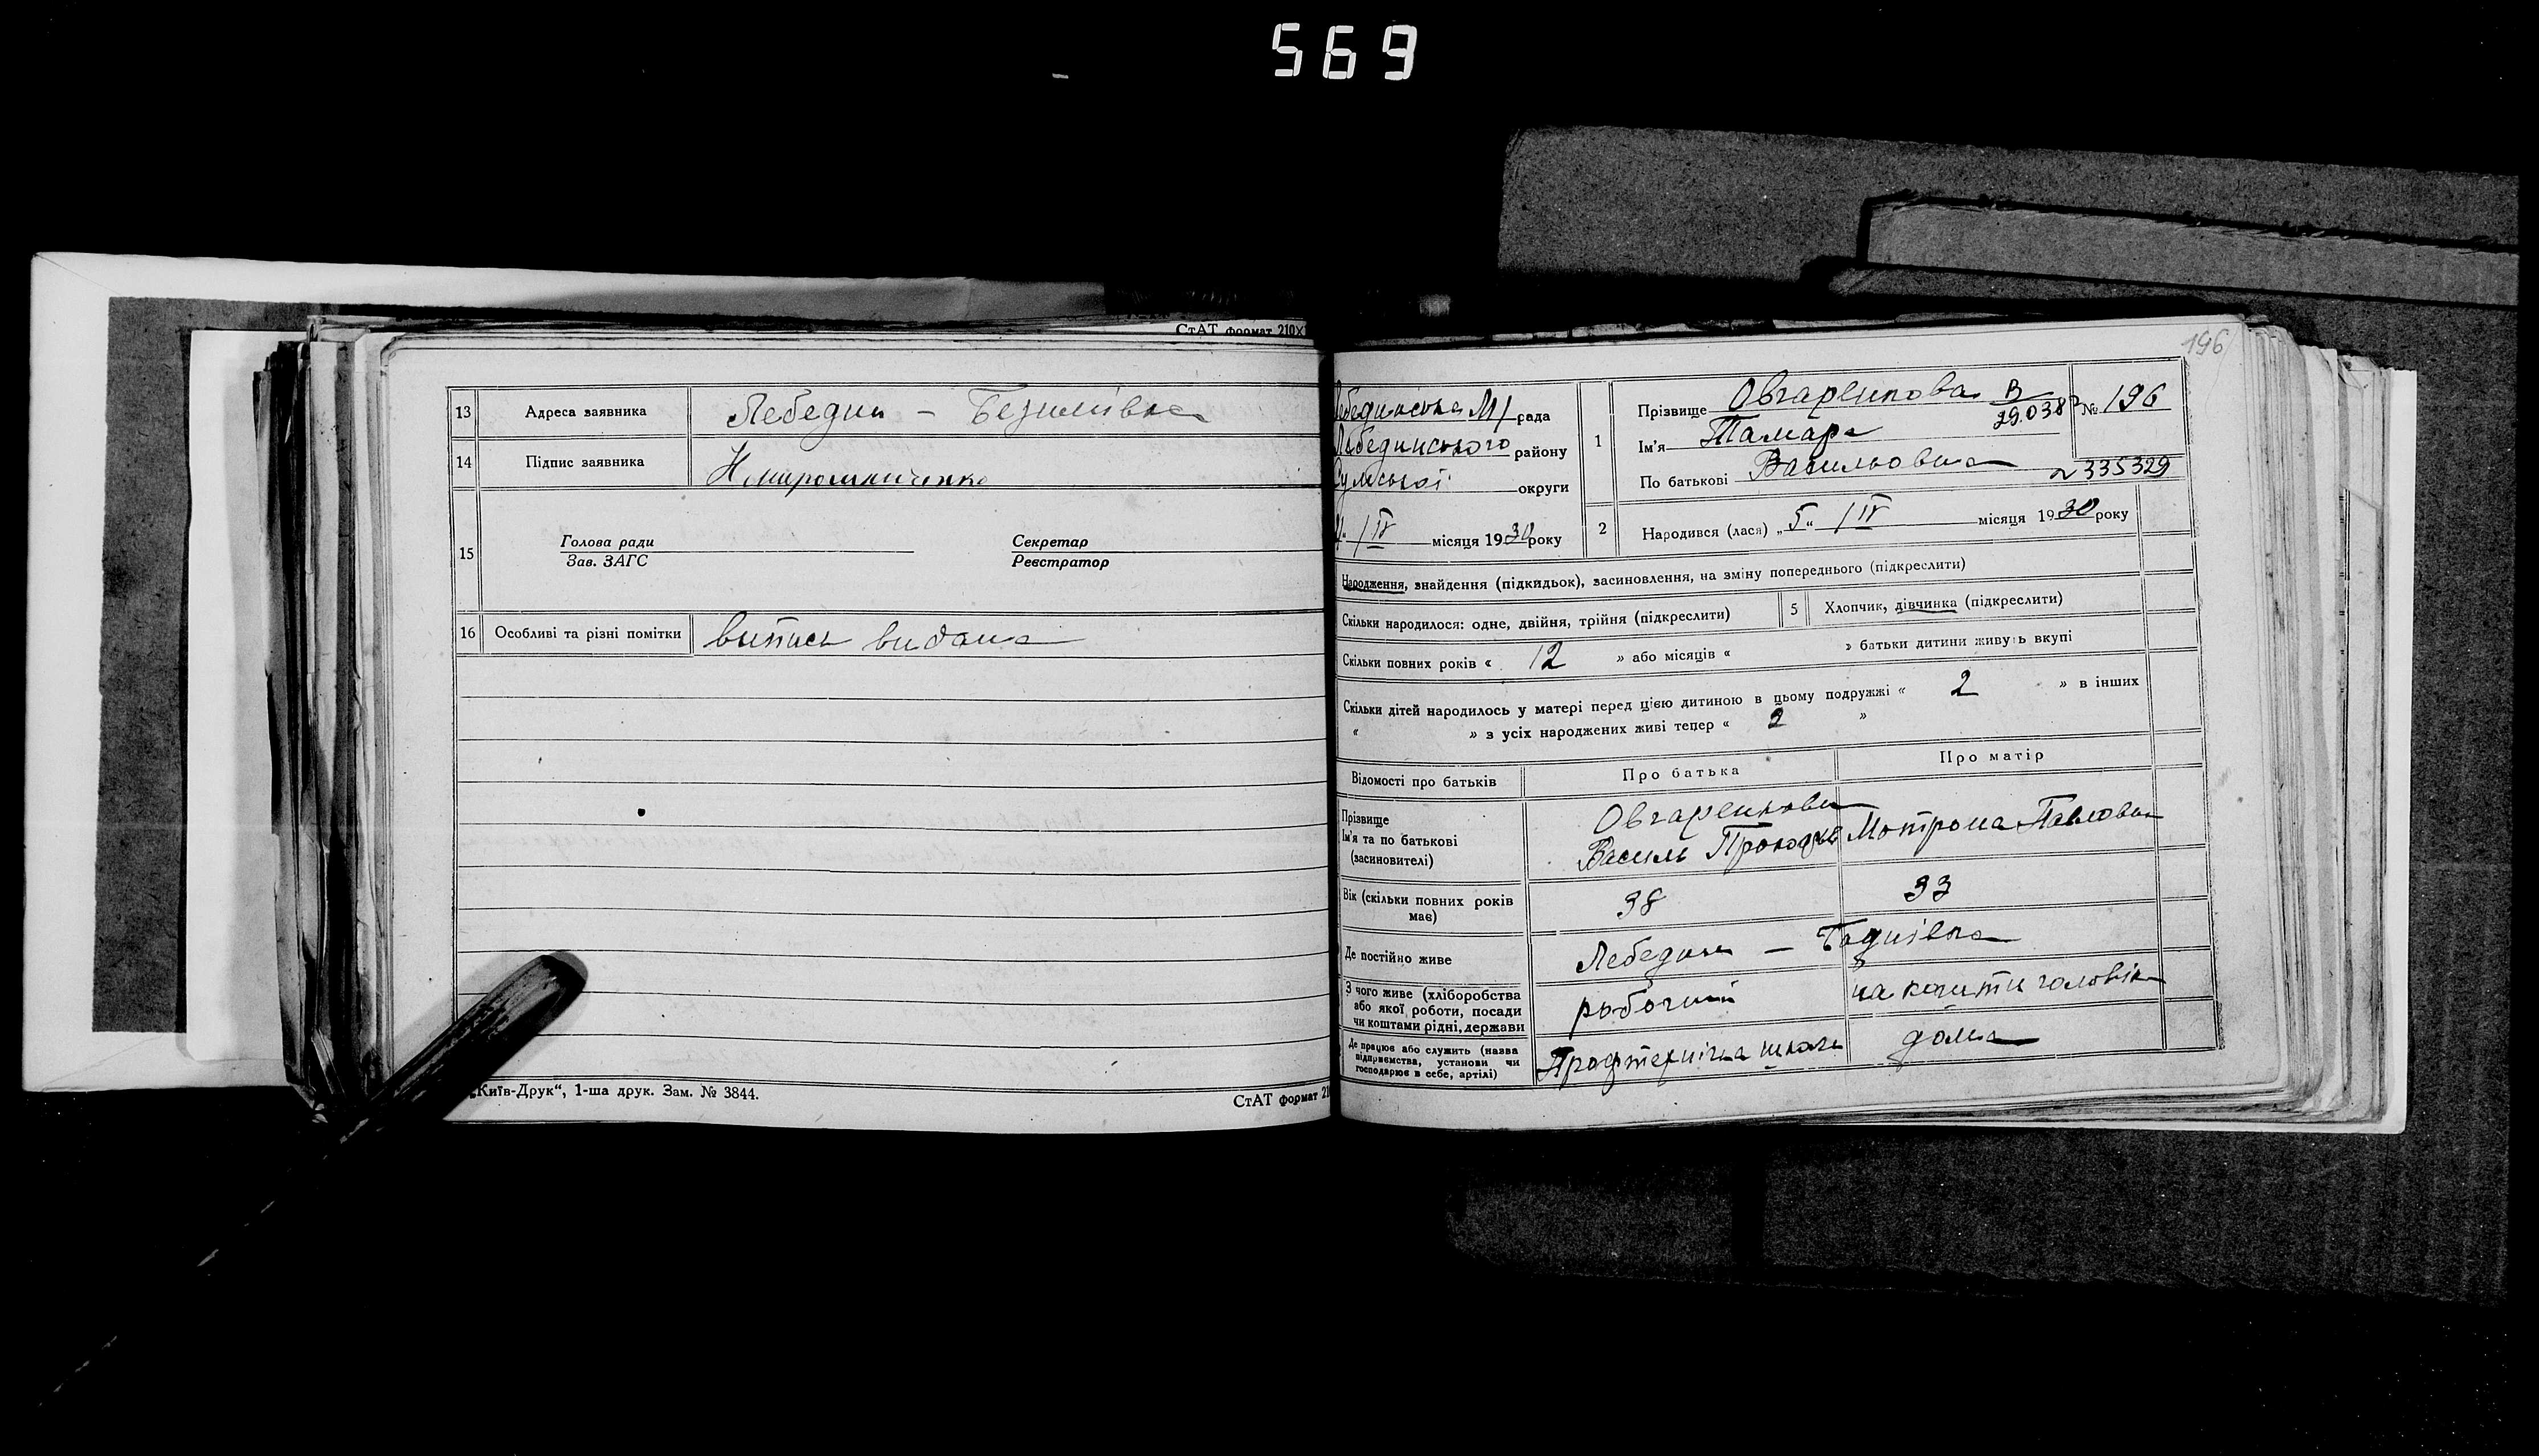 569
СтАТ формат 210X
13 Адреса заявника Лебедин –
14 Підпис заявника Н Мирошниченко
15 Голова ради Секретар
Зав. ЗАГС Реєстратор
16 Особливі та різні помітки випись видана
„Київ-Друк“, 1-ша друк. Зам. № 3844.
СтАТ формат 21
196
Лебединська М/рада
Лебединського району
Сумської округи
/IV місяця 1930 року
1 Прізвище Овчаренкова В № 196
29.038
Ім'я Тамара
По батькові Васильовна 335329
2 Народився (лася) „5“ /IV місяця 1930 року
Народження, знайдення (підкидьок), засиновлення, на зміну попереднього (підкреслити)
Скільки народилося: одне, двійня, трійня (підкреслити) 5 Хлопчик, дівчинка (підкреслити)
Скільки повних років « 12 » або місяців « » батьки дитини живуть вкупі
Скільки дітей народилось у матері перед цією дитиною в цьому подружжі « 2 » в інших
« » з усіх народжених живі тепер « 2 »
Відомості про батьків Про батька Про матір
Прізвище Овчаренкови
Ім'я та по батькові Василь Прокофье Мотрона Павловна
(засиновителі)
Вік (скільки повних років має) 38 33
Де постійно живе Лебедин –
З чого живе (хліборобства або якої роботи, посади чи коштами рідні, держави робочий на кошти чоловіка
Де працює або служить (назва підприємства, установи чи господарює в себе, артілі) Профтехнічна школа дома